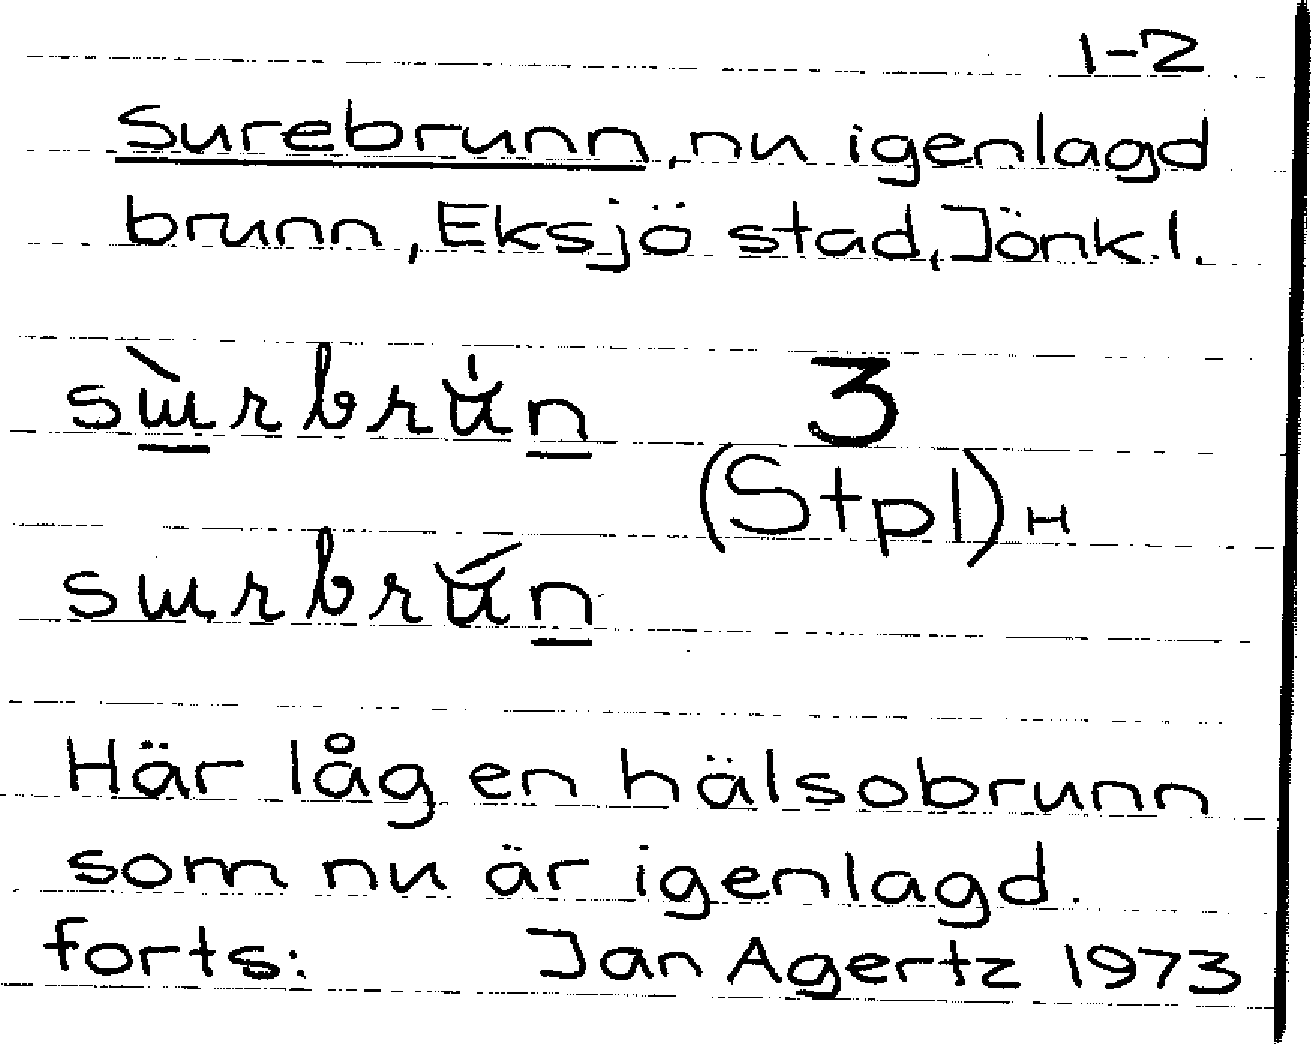 1-2
Surebrunn, nu igenlagd
brunn, Eksjö stad, Jönk.l.
3
(Stpl) H
Här låg en hälsobrunn
som nu är igenlagd.
forts: Jan Agertz 1973